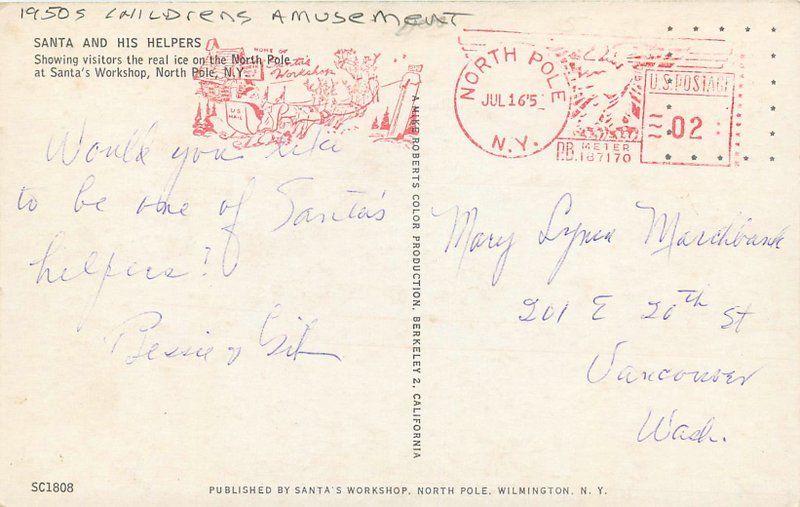 1950s CHILDRENS AMUSEMENT
SANTA AND HIS HELPERS
Showing visitors the real ice on the North Pole
at Santa's Workshop, North Pole, N.Y.
HOME OF
Santa's
Workshop
U.S.
MAIL
NORTH POLE
JUL 16'5
N.Y.
U.S. POSTAGE
02
P.B. METER
187170
A MIKE ROBERTS COLOR PRODUCTION, BERKELEY 2, CALIFORNIA
Would you like
to be one of Santa's
helpers?
Bessie & Gib
Mary Lynn Marchbank
201 E 20th St
Vancouver
Wash.
SC1808
PUBLISHED BY SANTA'S WORKSHOP, NORTH POLE, WILMINGTON, N. Y.